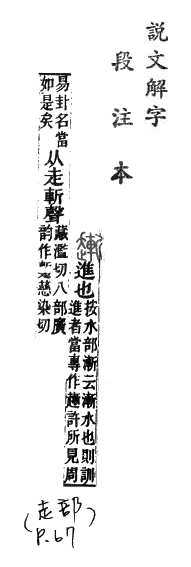 說文解字
段注本
進也
按水部漸云漸水也則訓
進者當專作𧽯許所見周
易卦名當
如是矣
从走斬聲
藏濫切八部廣
韵作慈染切
(走部)
P.67